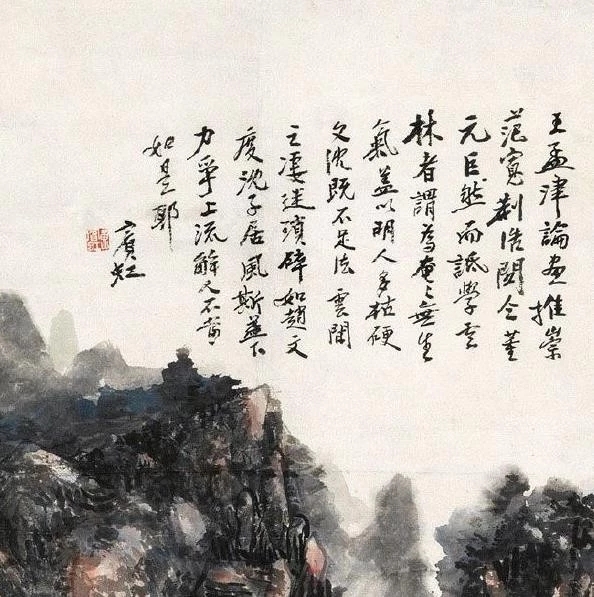 王孟津論畫推崇
范寬荆浩關仝董
元巨然而詆學雲
林者謂為奄奄無生
氣蓋以明人多枯硬
文沈既不足法雲間
之凄迷瑣碎如趙文
度沈子居風斯益下
力爭上流解人不當
如是耶
賓虹